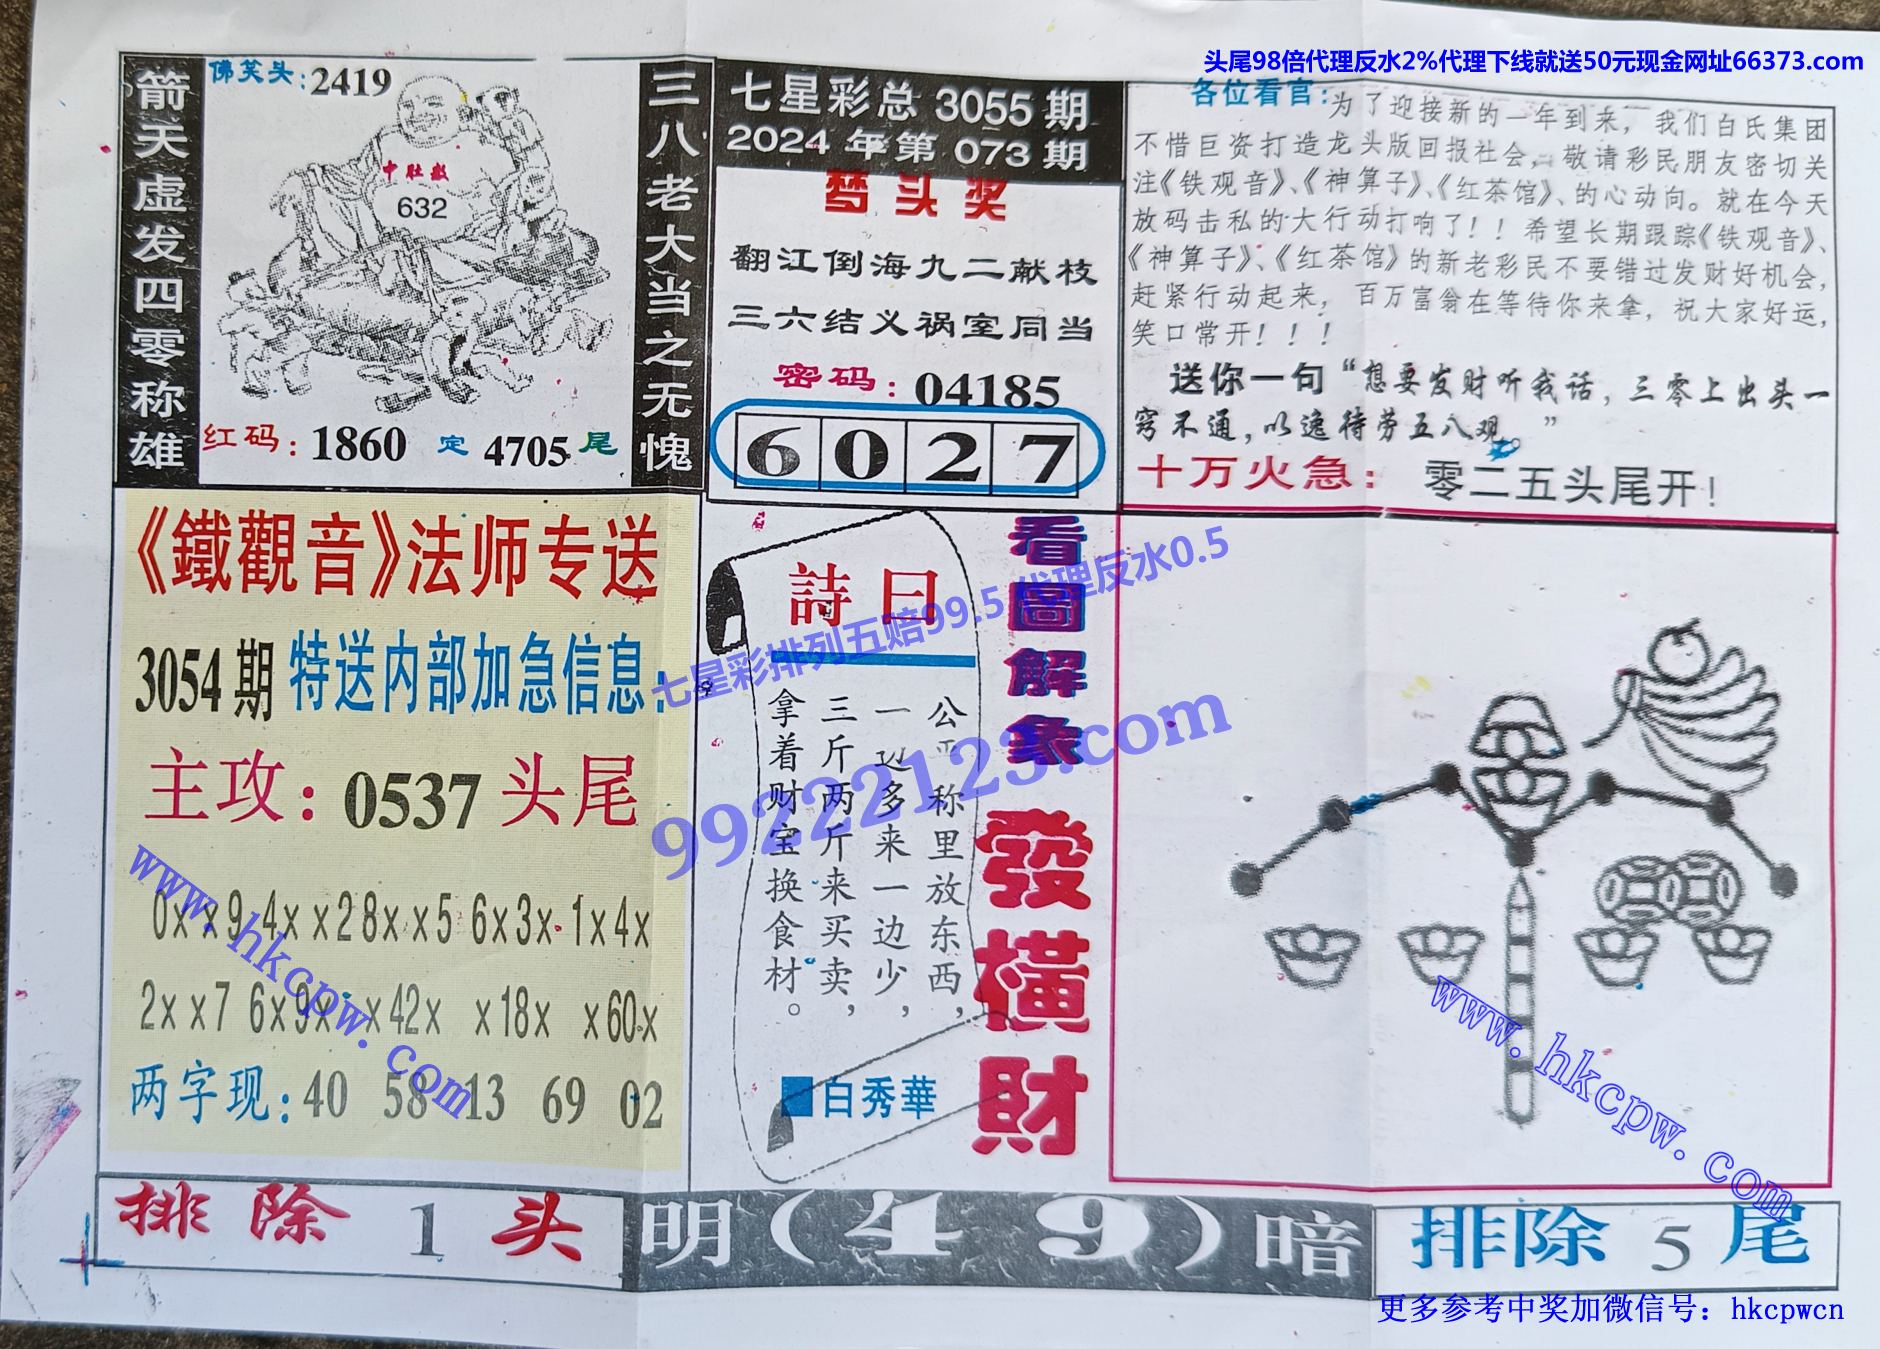 头尾98倍代理反水2%代理下线就送50元现金网址66373.com
箭天虚发四零称雄
佛笑头:2419
中肚数
632
红码:1860 定 4705 尾
三八老大当之无愧
七星彩总 3055 期
2024 年第 073 期
梦头奖
翻江倒海九二献枝
三六结义祸室同当
密码:04185
6 0 2 7
各位看官:为了迎接新的一年到来，我们白氏集团
不惜巨资打造龙头版回报社会，敬请彩民朋友密切关
注《铁观音》、《神算子》、《红茶馆》、的心动向。就在今天
放码击私的大行动打响了！！希望长期跟踪《铁观音》、
《神算子》、《红茶馆》的新老彩民不要错过发财好机会，
赶紧行动起来，百万富翁在等待你来拿，祝大家好运，
笑口常开！！！
送你一句“想要发财听我话，三零上出头一
窍不通，以逸待劳五八观。”
十万火急：零二五头尾开！
《鐵觀音》法师专送
3054期 特送内部加急信息:
主攻:0537头尾
0××9 4××2 8××5 6×3× 1×4×
2××7 6×9× ×42× ×18× ×60×
两字现:40 58 13 69 02
詩曰
公平称里放东西，
一边多来一边少，
三斤两斤来买卖，
拿着财宝换食材。
白秀華
看圖解象
發橫財
七星彩排列五赔99.5 代理反水0.5
99222123.com
www.hkcpw.com
www.hkcpw.com
排除 1 头
明(49)暗
排除 5 尾
更多参考中奖加微信号：hkcpwcn